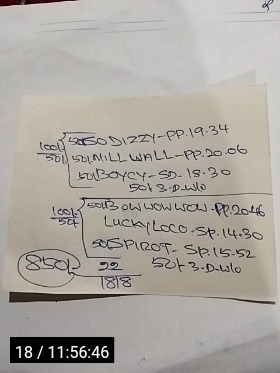 100/- 50/- 50/50 DIZZY-PP.19.34
50/MILLWALL-PP.20.06
50/BOYCY-SD.18.30
50/3.D.W/O
100/- 50/- 50/BOWWOWWOW.PP.20.46
LUCKYLOCO.SP.14.30
50/SPIROT-SP.15.52
850/- 22 50/3.D.W/O
1818
18 / 11:56:46